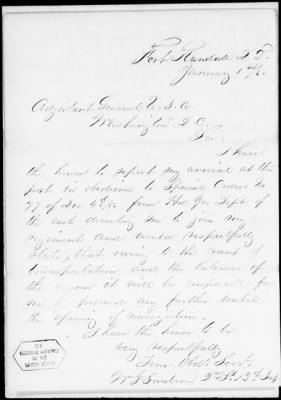 Fort Randall D.T.
January 1st /6
Adjutant General U.S.A.
Washington D.C.
Sir:
I have
the honor to report my arrival at this
post in obedience to Special Orders No
77 of Dec 4th from Hd Qrs Dept of
the East directing me to join my
regiment and would respectfully
state, that owing to the want of
transportation and the lateness of
the season it will be impossible for
me to proceed any further until
the opening of navigation.
I have the honor to
be very respectfully
Your Obdt Servt
2d Lt. 13th Inf
THE
NATIONAL ARCHIVES
OF THE
UNITED STATES